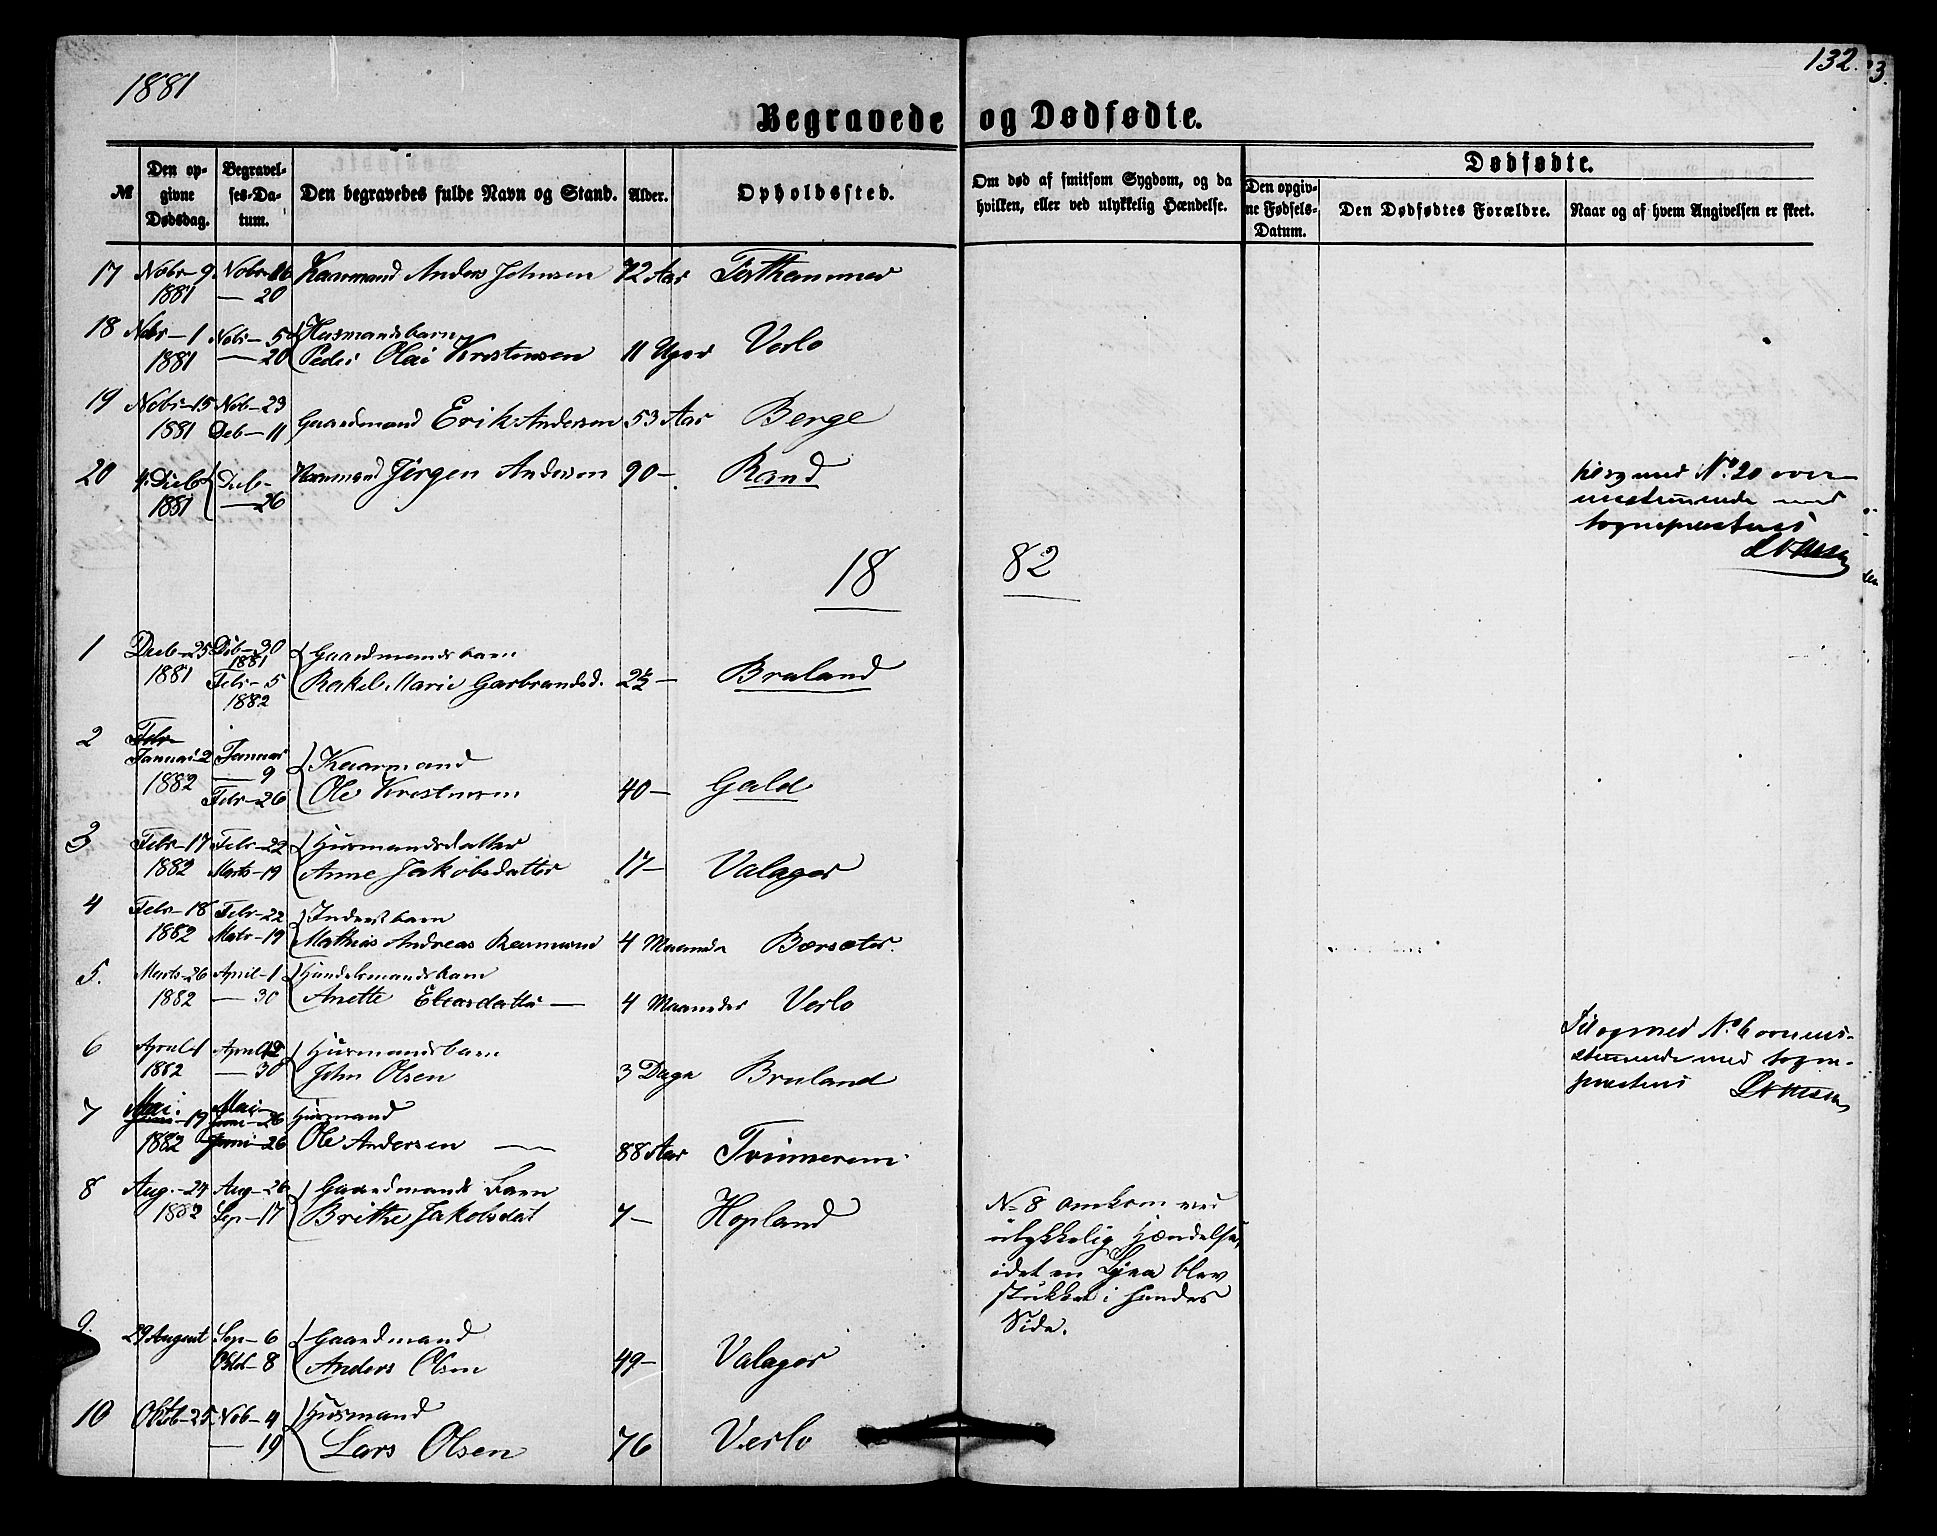 1881
132.
Begravede og Dødfødte.
№
Den opgivne Dødsdag.
Begravelses-Datum.
Den begravedes fulde Navn og Stand.
Alder.
Opholdssted.
Om død af smitsom Sygdom, og da hvilken, eller ved ulykkelig Hændelse.
Dødfødte.
Den opgivne Fødsels-Datum.
Den Dødfødtes Forældre.
Naar og af hvem Angivelsen er skeet.
17 Nobr-9. Nobr-16 Kaarmand Anders Johnsen 72 Aar
1881 — 20
18 Nobr-1 Nobr-5 Husmandsbarn
1881 — 20 Peder Olai Kristensen 11 Uger Verlo
19 Nobr-15 Nob-23
1881 Deb-11 Gaardmand Erik Andersen 53 Aar Berge
20 4 Dieb Dieb- Kaarmand Jørgen Andersen 90- Rand
1881 — 26
til og med No. 20 overensstemmende med
sogneprestens
18 82
1 Deeb-25 Dib-30 Gaardmandsbarn
1881 1881
Febr-5 Rakel Marie Garbrandsd. 2½- Bruland
1882
2 Januar 2 Januar Kaarmand
1882 — 9
Febr-26 Ole Kristensen 40- Gald
3 Febr-17 Febr-22 Husmandsdatter
1882 Marts-19 Anne Jakobsdatter 17- Valager
4 Febr-18 Febr-22 Inderstbarn
1882 Mats-19 Mathias Andreas Rasmussen 4 Maaneder Børsæter.
5. Marts-26 April-1 Handelsmandsbarn
1882 — 30 Anette Eliasdatter — 4 Maaneder Verlo
6 April-1 April-12 Husmandsbarn
1882 — 30 John Olsen 3 Dage Bruland
Til og med No. 6 overens-
stemmende med sogne-
prestens
7 Mai. 19 Mai 26 Husmand
1882 Juni-26 Ole Andersen — 88 Aar
8 Aug.-24 Aug-26 Gaardmands Barn
1882 Sep-17 Brithe Jakobsdat 7- Hopland
No 8 omkom ved
ulykkelig Hændelse,
idet en Ljaa blev
stukket i hendes
Side.
9. 29 August Sep-6 Gaardmand
Oktb-8 Anders Olsen 49- Valager
10 Oktob-25. Nob-4 Husmand
— 19 Lars Olsen 76 Verlo